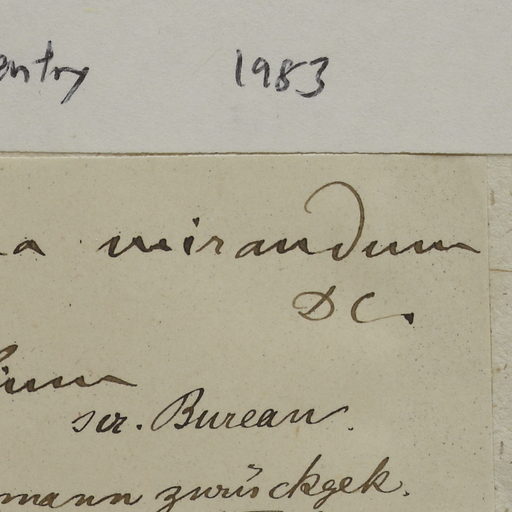 entry 1983
a mirandum
DC.
ium
scr. Bureau.
mann zurückgek.